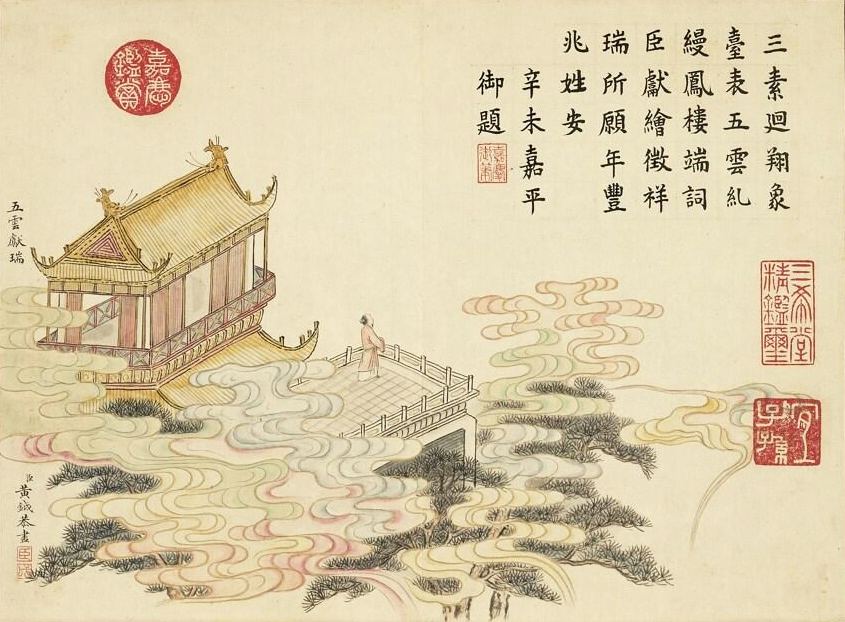 三素迴翔象
臺表五雲糺
縵鳳樓端詞
臣獻繪徵祥
瑞所願年豐
兆姓安
辛未嘉平
御題
嘉慶御筆
三希堂
精鑑璽
宜子孫
嘉慶
鑑賞
五雲獻瑞
臣黃鉞恭畫